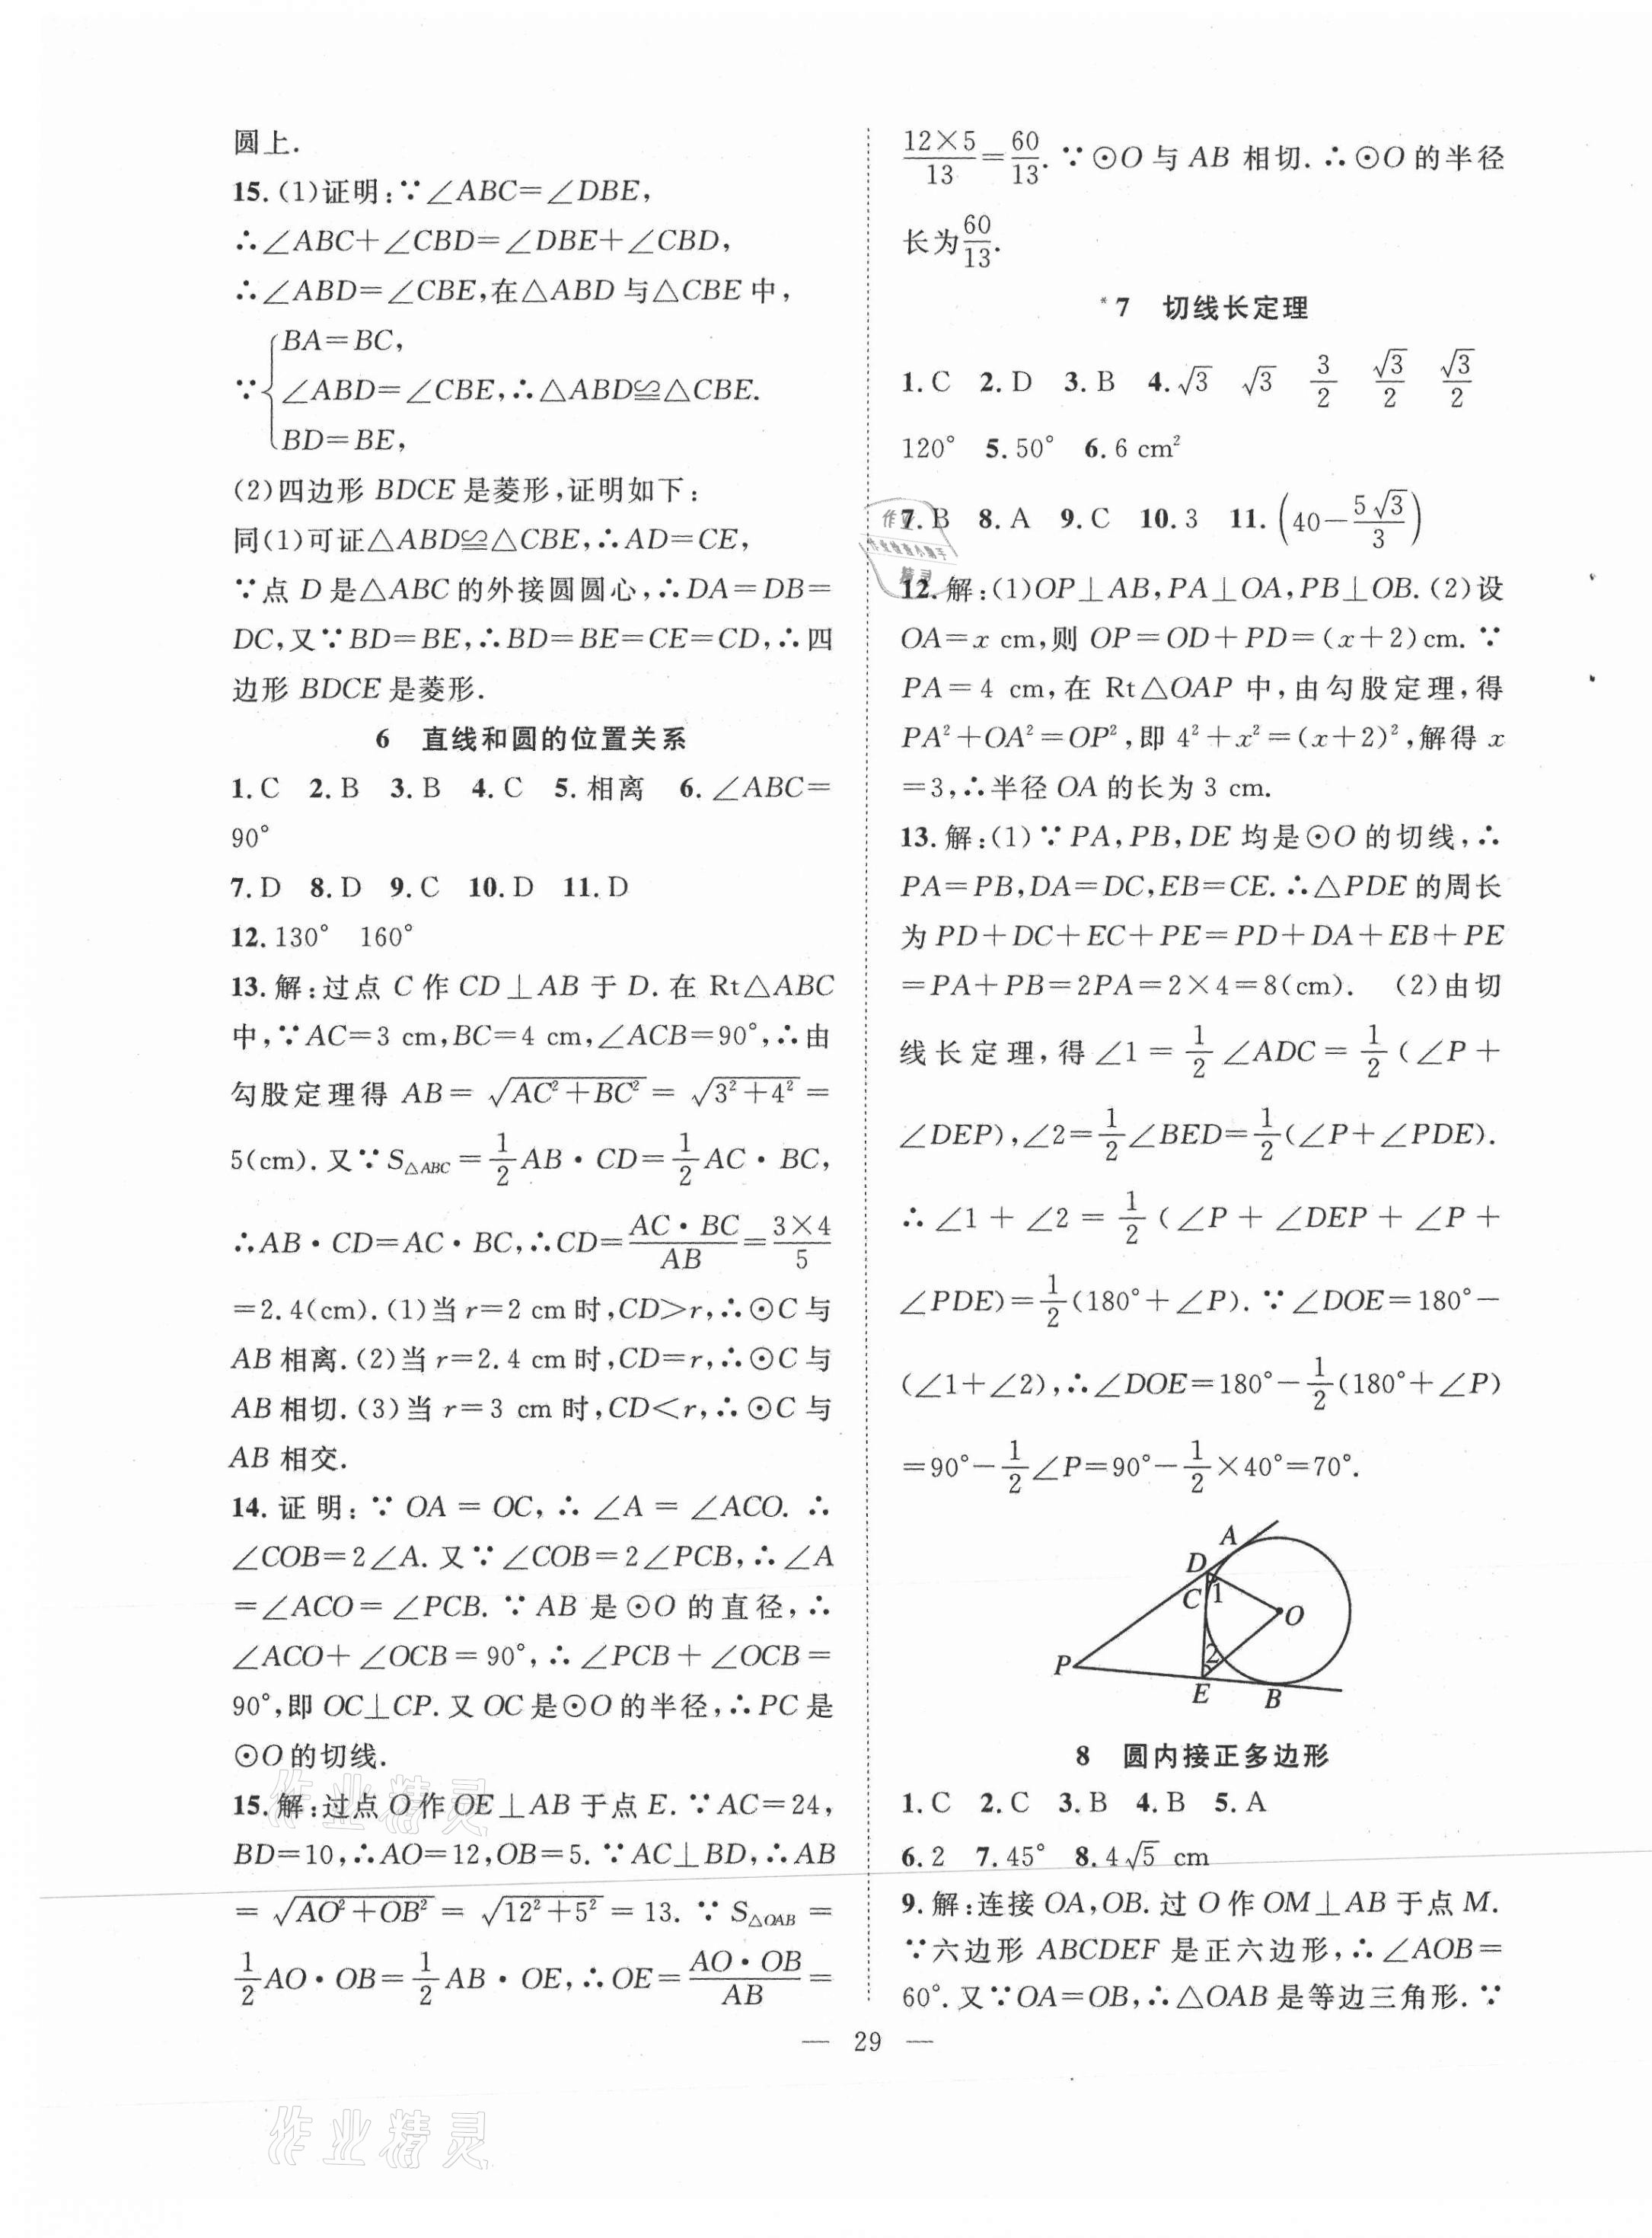 圆上.
15.(1)证明:∵∠ABC=∠DBE,
∴∠ABC+∠CBD=∠DBE+∠CBD,
∴∠ABD=∠CBE,在△ABD与△CBE中,
BA=BC,
∵{∠ABD=∠CBE,∴△ABD≌△CBE.
BD=BE,
(2)四边形BDCE是菱形,证明如下:
同(1)可证△ABD≌△CBE,∴AD=CE,
∵点D是△ABC的外接圆圆心,∴DA=DB=
DC,又∵BD=BE,∴BD=BE=CE=CD,∴四
边形BDCE是菱形.
6 直线和圆的位置关系
1.C 2.B 3.B 4.C 5.相离 6.∠ABC=
90°
7.D 8.D 9.C 10.D 11.D
12.130° 160°
13.解:过点C作CD⊥AB于D.在Rt△ABC
中,∵AC=3 cm,BC=4 cm,∠ACB=90°,∴由
勾股定理得AB=√(AC²+BC²)=√(3²+4²)=
5(cm).又∵S△ABC=1/2AB·CD=1/2AC·BC,
∴AB·CD=AC·BC,∴CD=(AC·BC)/AB=(3×4)/5
=2.4(cm).(1)当r=2 cm时,CD>r,∴⊙C与
AB相离.(2)当r=2.4 cm时,CD=r,∴⊙C与
AB相切.(3)当r=3 cm时,CD<r,∴⊙C与
AB相交.
14.证明:∵OA=OC,∴∠A=∠ACO.∴
∠COB=2∠A.又∵∠COB=2∠PCB,∴∠A
=∠ACO=∠PCB.∵AB是⊙O的直径,∴
∠ACO+∠OCB=90°,∴∠PCB+∠OCB=
90°,即OC⊥CP.又OC是⊙O的半径,∴PC是
⊙O的切线.
15.解:过点O作OE⊥AB于点E.∵AC=24,
BD=10,∴AO=12,OB=5.∵AC⊥BD,∴AB
=√(AO²+OB²)=√(12²+5²)=13.∵S△OAB=
1/2AO·OB=1/2AB·OE,∴OE=(AO·OB)/AB=
(12×5)/13=60/13.∵⊙O与AB相切.∴⊙O的半径
长为60/13.
*7 切线长定理
1.C 2.D 3.B 4.√3 √3 3/2 √3/2 √3/2
120° 5.50° 6.6 cm²
7.B 8.A 9.C 10.3 11.(40-5√3/3)
12.解:(1)OP⊥AB,PA⊥OA,PB⊥OB.(2)设
OA=x cm,则OP=OD+PD=(x+2)cm.∵
PA=4 cm,在Rt△OAP中,由勾股定理,得
PA²+OA²=OP²,即4²+x²=(x+2)²,解得x
=3,∴半径OA的长为3 cm.
13.解:(1)∵PA,PB,DE均是⊙O的切线,∴
PA=PB,DA=DC,EB=CE.∴△PDE的周长
为PD+DC+EC+PE=PD+DA+EB+PE
=PA+PB=2PA=2×4=8(cm). (2)由切
线长定理,得∠1=1/2∠ADC=1/2(∠P+
∠DEP),∠2=1/2∠BED=1/2(∠P+∠PDE).
∴∠1+∠2=1/2(∠P+∠DEP+∠P+
∠PDE)=1/2(180°+∠P).∵∠DOE=180°-
(∠1+∠2),∴∠DOE=180°-1/2(180°+∠P)
=90°-1/2∠P=90°-1/2×40°=70°.
A
D
C 1
O
2
P
E B
8 圆内接正多边形
1.C 2.C 3.B 4.B 5.A
6.2 7.45° 8.4√5 cm
9.解:连接OA,OB.过O作OM⊥AB于点M.
∵六边形ABCDEF是正六边形,∴∠AOB=
60°.又∵OA=OB,∴△OAB是等边三角形.∵
— 29 —
作业精灵
作业精灵